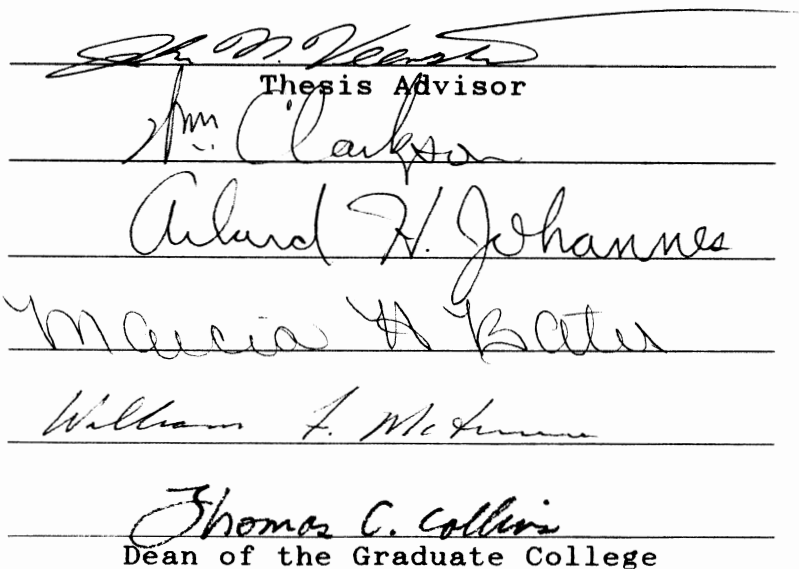 John N. Veenstra
Thesis Advisor
Wm. Clarkson
Arland H. Johannes
Marcia H Bates
William F. McTernan
Thomas C. Collins
Dean of the Graduate College